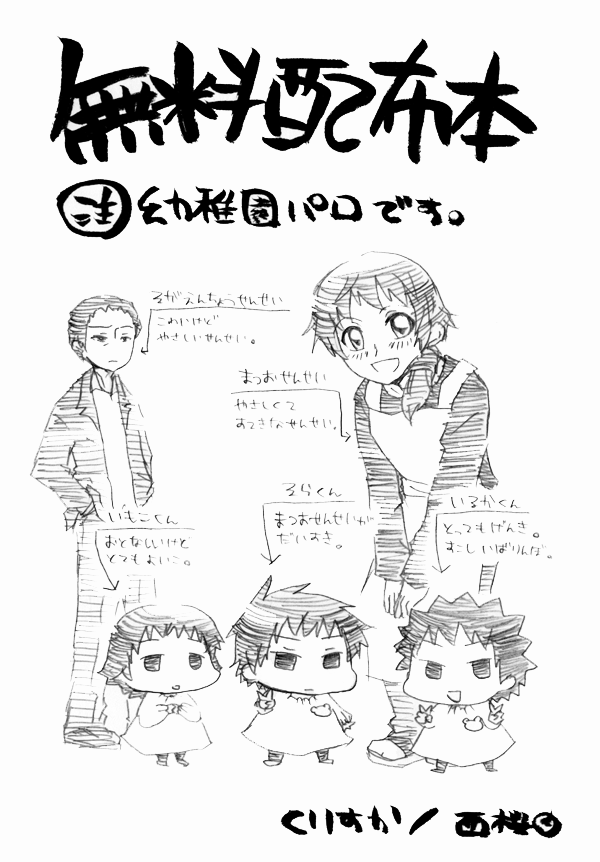 無料配布本
注 幼稚園パロです。
そがえんちょうせんせい
こわいけど
やさしいせんせい。
まつおせんせい
やさしくて
すてきなせんせい。
そらくん
まつおせんせいが
だいすき。
いるかくん
とってもげんき。
すこしいばりんぼ。
いもこくん
おとなしいけど
とてもよいこ。
くりすか/西桜